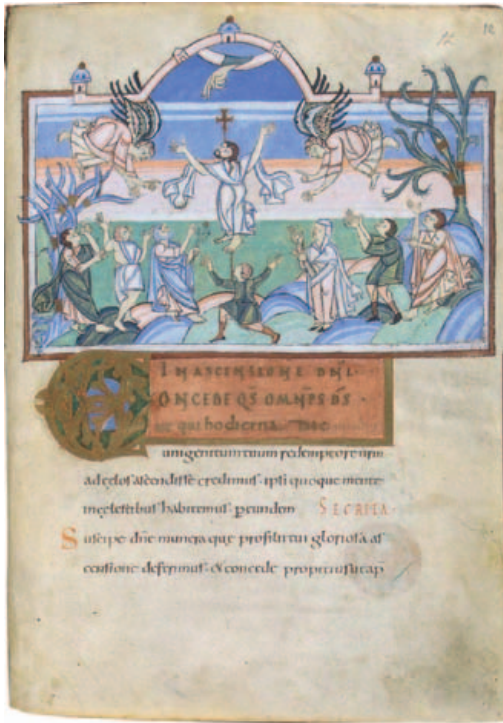 12
IN ASCENSIONE DNI
CONCEDE QS OMNPS DS ·
ut qui hodierna die
unigenitum tuum redemptore nrm
ad celos ascendisse credimus · ipsi quoque mente
in celestibus habitemus · p eundem SECRETA ·
Suscipe dne munera que pro filii tui gloriosa as
censione deferimus · & concede propitius ut a p